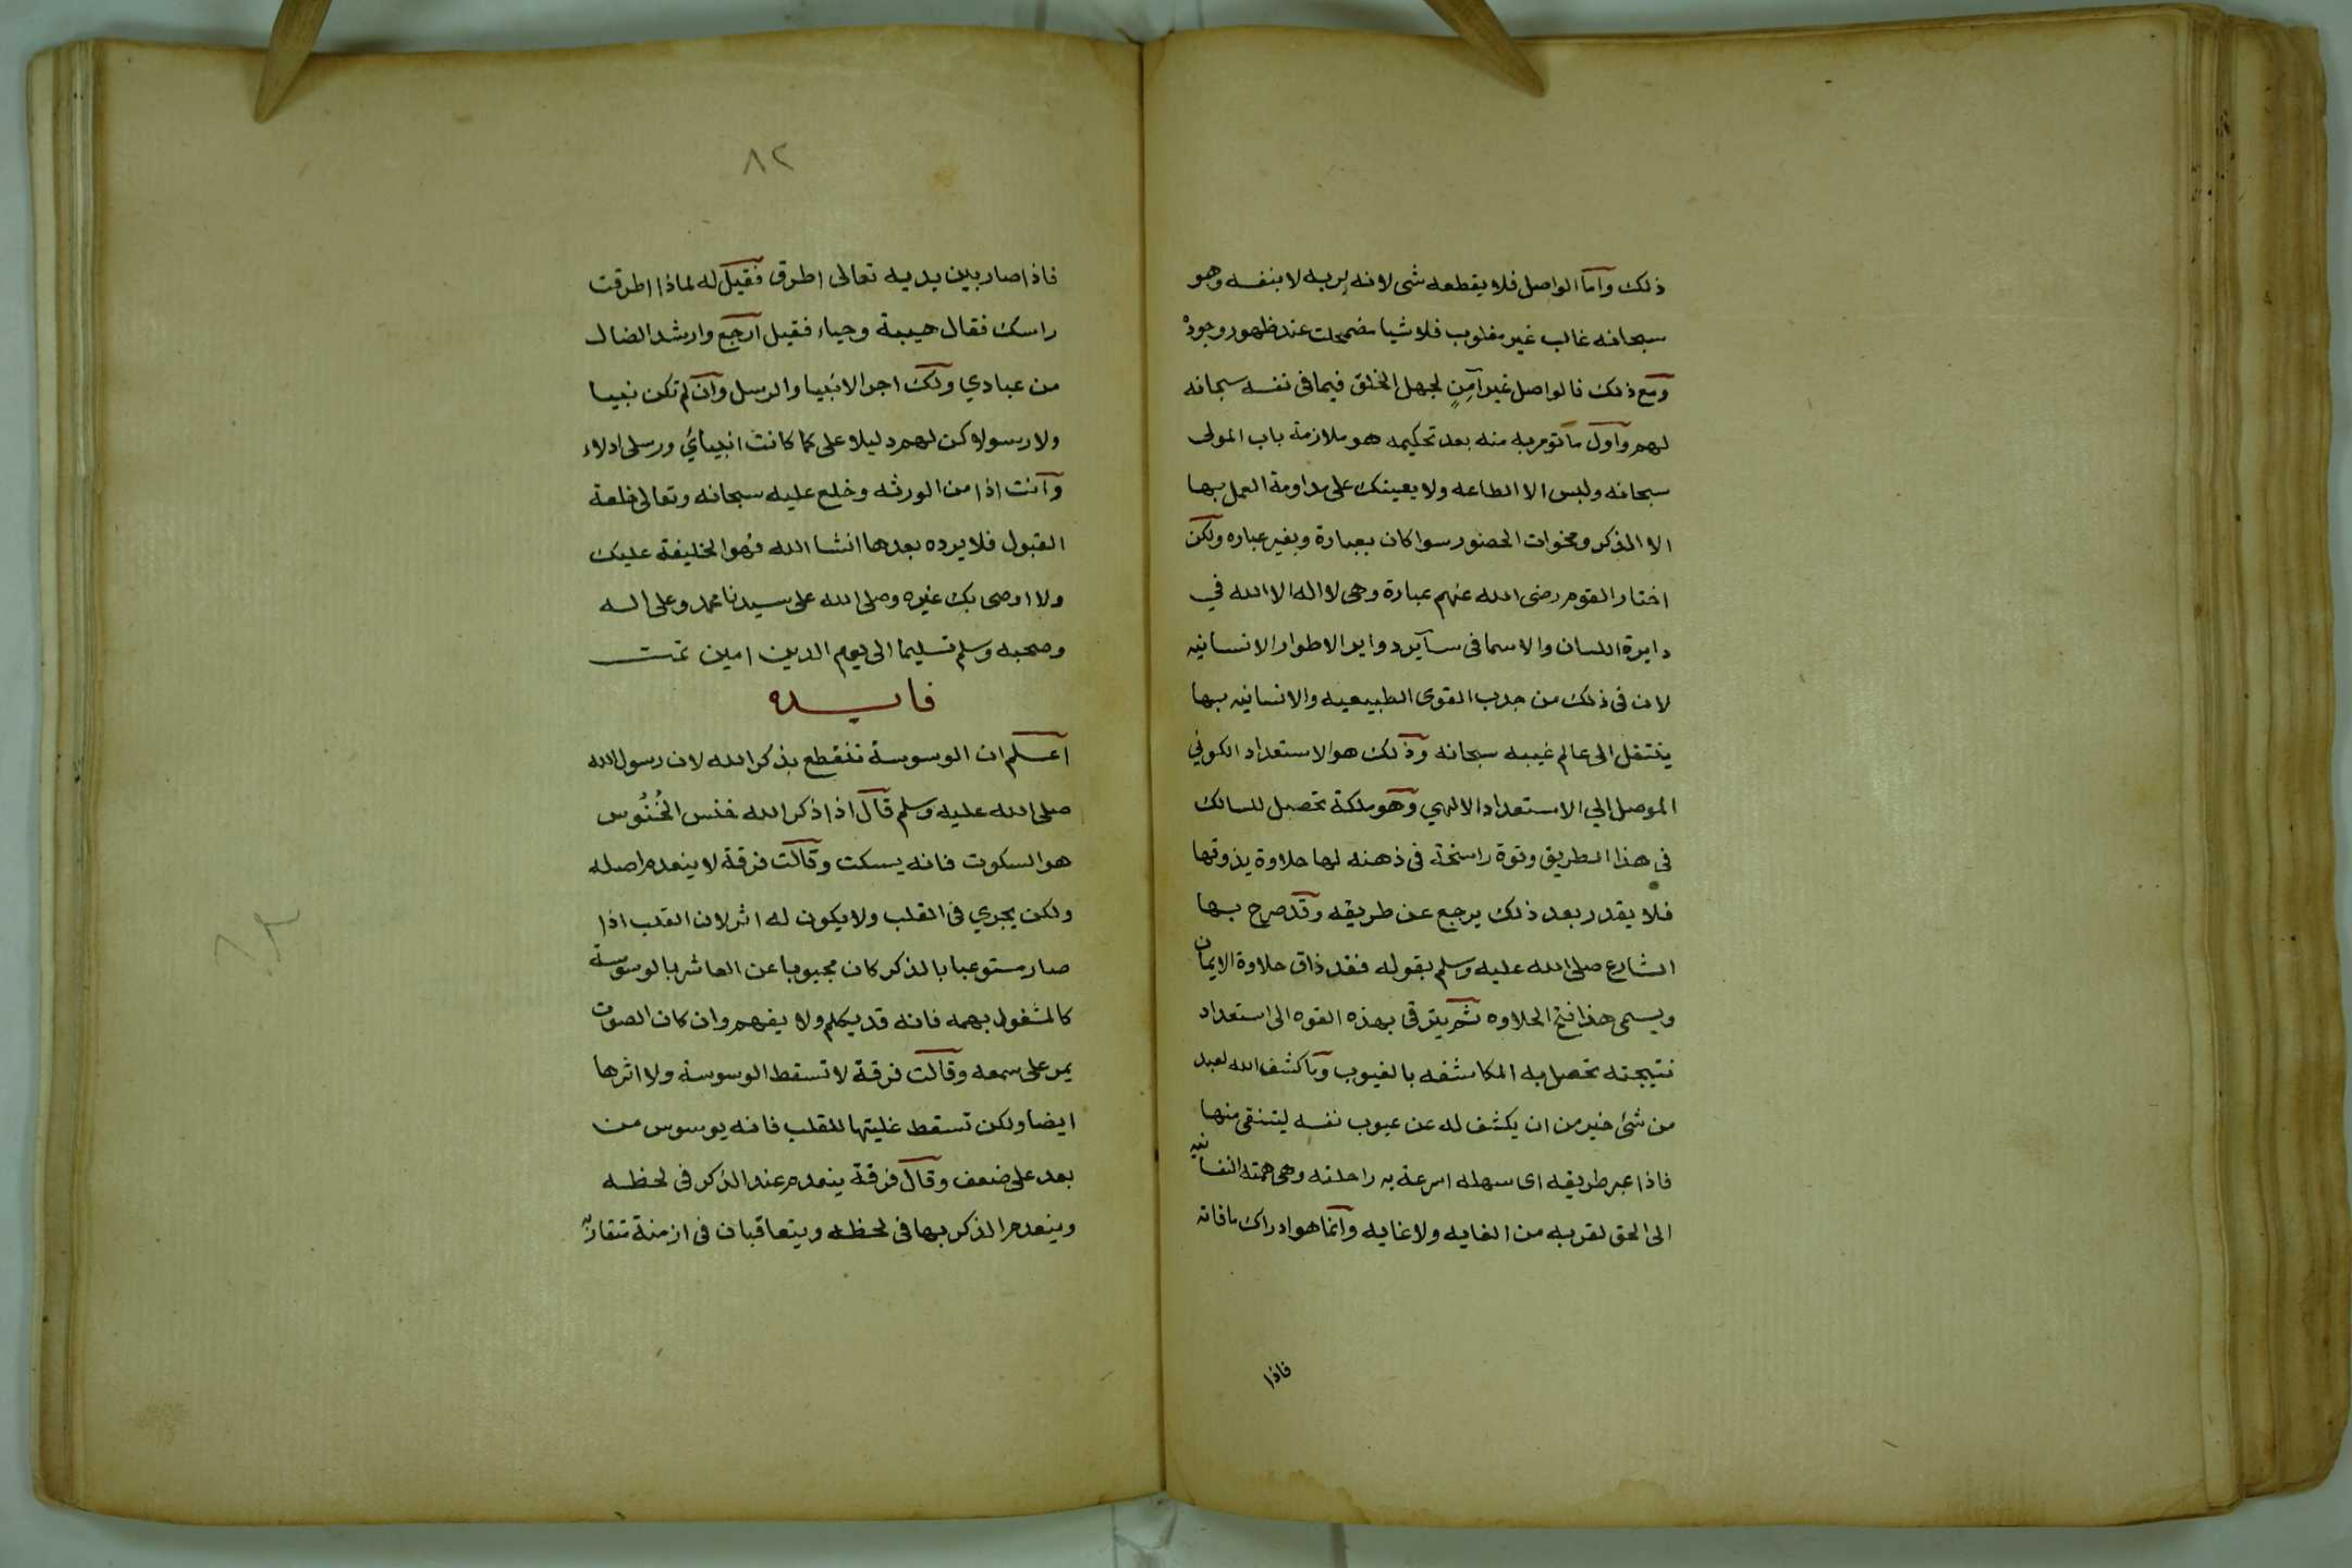 ذلك واما الواصل فلا يقطعه شى لانه بربه لا بنفسه وهو
سبحانه غالب غير مغلوب فلاشيا مضمحلت عند ظهور وجوده
ومع ذلك فالواصل غير آمن لجهل الخلق فيما فى نفسه سبحانه
لهم واول ما تومر به منه بعد تحكيمه هو ملازمة باب المولى
سبحانه وليس الا الطاعه ولا يعينك على مداومة العمل بها
الا الذكر ومخوات الحضور سوا كان بعبارة وبغير عباره ولكن
اختار القوم رضى الله عنهم عبارة وهى لا اله الا الله في
دايرة اللسان والاسما فى ساير دواير الاطوار الانسانيه
لان فى ذلك من جدب القوى الطبيعيه والانسانيه بها
ينتقل الى عالم غيبه سبحانه وذلك هو الاستعداد الكوني
الموصل الي الاستعداد الالهي وهو ملكة تحصل للسالك
في هذا الطريق وقوة راسخة فى ذهنه لها حلاوة يذوقها
فلا يقدر بعد ذلك يرجع عن طريقه وقد صرح بها
الشارع صلى الله عليه وسلم بقوله فقد ذاق حلاوة الايمان
ويسمى هذا فتح الحلاوه ثم يترقى بهذه القوه الى استعداد
نتيجته تحصل به المكاشفه بالغيوب وما كشف الله لعبد
من شئ خير من ان يكشف له عن عيوب نفسه ليتنقى منها
فاذا عبر طريقه اى سهله اسرعة به راحلته وهى همته النفسانيه
الى الحق لقربه من الغايه ولا غايه وانما هو ادراك ما فاته
فاذا
٨٢
فاذا صار بين يديه تعالى اطرق فقيل له لماذا اطرقت
راسك فقال هيبة وحياء فقيل ارجع وارشد الضال
من عبادي ولك اجر الانبيا والرسل وان لم تكن نبيا
ولا رسولا كن لهم دليلا على كما كانت انبيائي ورسلى ادلاء
وانت اذا من الورثه وخلع عليه سبحانه وتعالى خلعة
القبول فلا يرده بعدها انشا الله فهو الخليفة عليك
ولا اوصى بك غيره وصلى الله على سيدنا محمد وعلى اله
وصحبه وسلم تسليما الى يوم الدين امين تمت
فايده
اعلم ان الوسوسة تنقطع بذكر الله لان رسول الله
صلى الله عليه وسلم قال اذا ذكر الله خنس الخُنُوس
هو السكوت فانه يسكت وقالت فرقة لا ينعدم اصله
ولكن يجري فى القلب ولا يكون له اثر لان القلب اذا
صار مستوعبا بالذكر كان محبوبا عن العاشر بالوسوسة
كالمشغول بهمه فانه قد يكلم ولا يفهم وان كان الصوت
يمر على سمعه وقالت فرقة لا تسقط الوسوسة ولا اثرها
ايضا ولكن تسقط غلبتها للقلب فانه يوسوس من
بعد على ضعف وقال فرقة ينعدم عند الذكر فى لحظه
وينعدم الذكر بها فى لحظه ويتعاقبان فى ازمنة متقاربه
٨٢